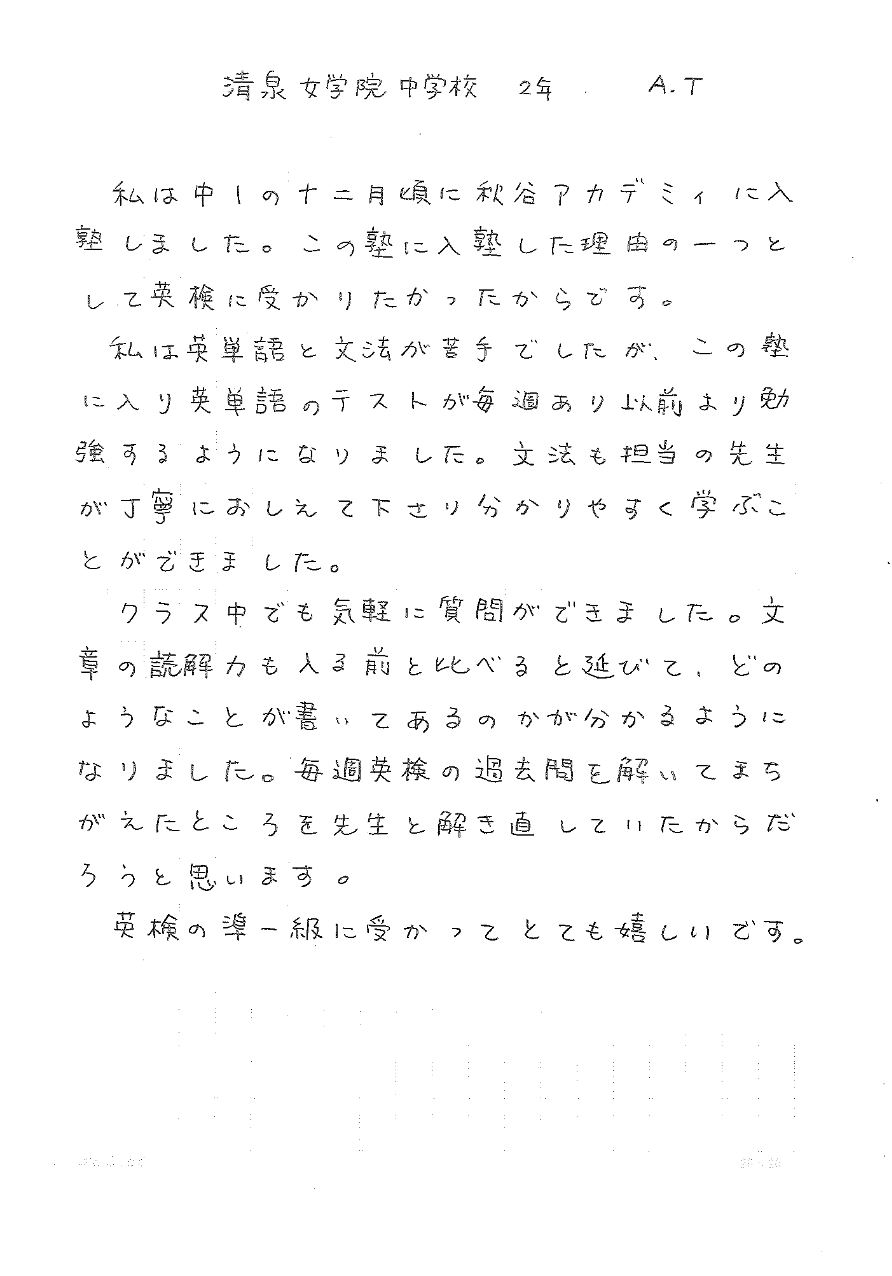 清泉女学院中学校 2年 A.T
私は中1の十二月頃に秋谷アカデミィに入
塾しました。この塾に入塾した理由の一つと
して英検に受かりたかったからです。
私は英単語と文法が苦手でしたが、この塾
に入り英単語のテストが毎週あり以前より勉
強するようになりました。文法も担当の先生
が丁寧におしえて下さり分かりやすく学ぶこ
とができました。
クラス中でも気軽に質問ができました。文
章の読解力も入る前と比べると延びて、どの
ようなことが書いてあるのかが分かるように
なりました。毎週英検の過去問を解いてまち
がえたところを先生と解き直していたからだ
ろうと思います。
英検の準一級に受かってとても嬉しいです。